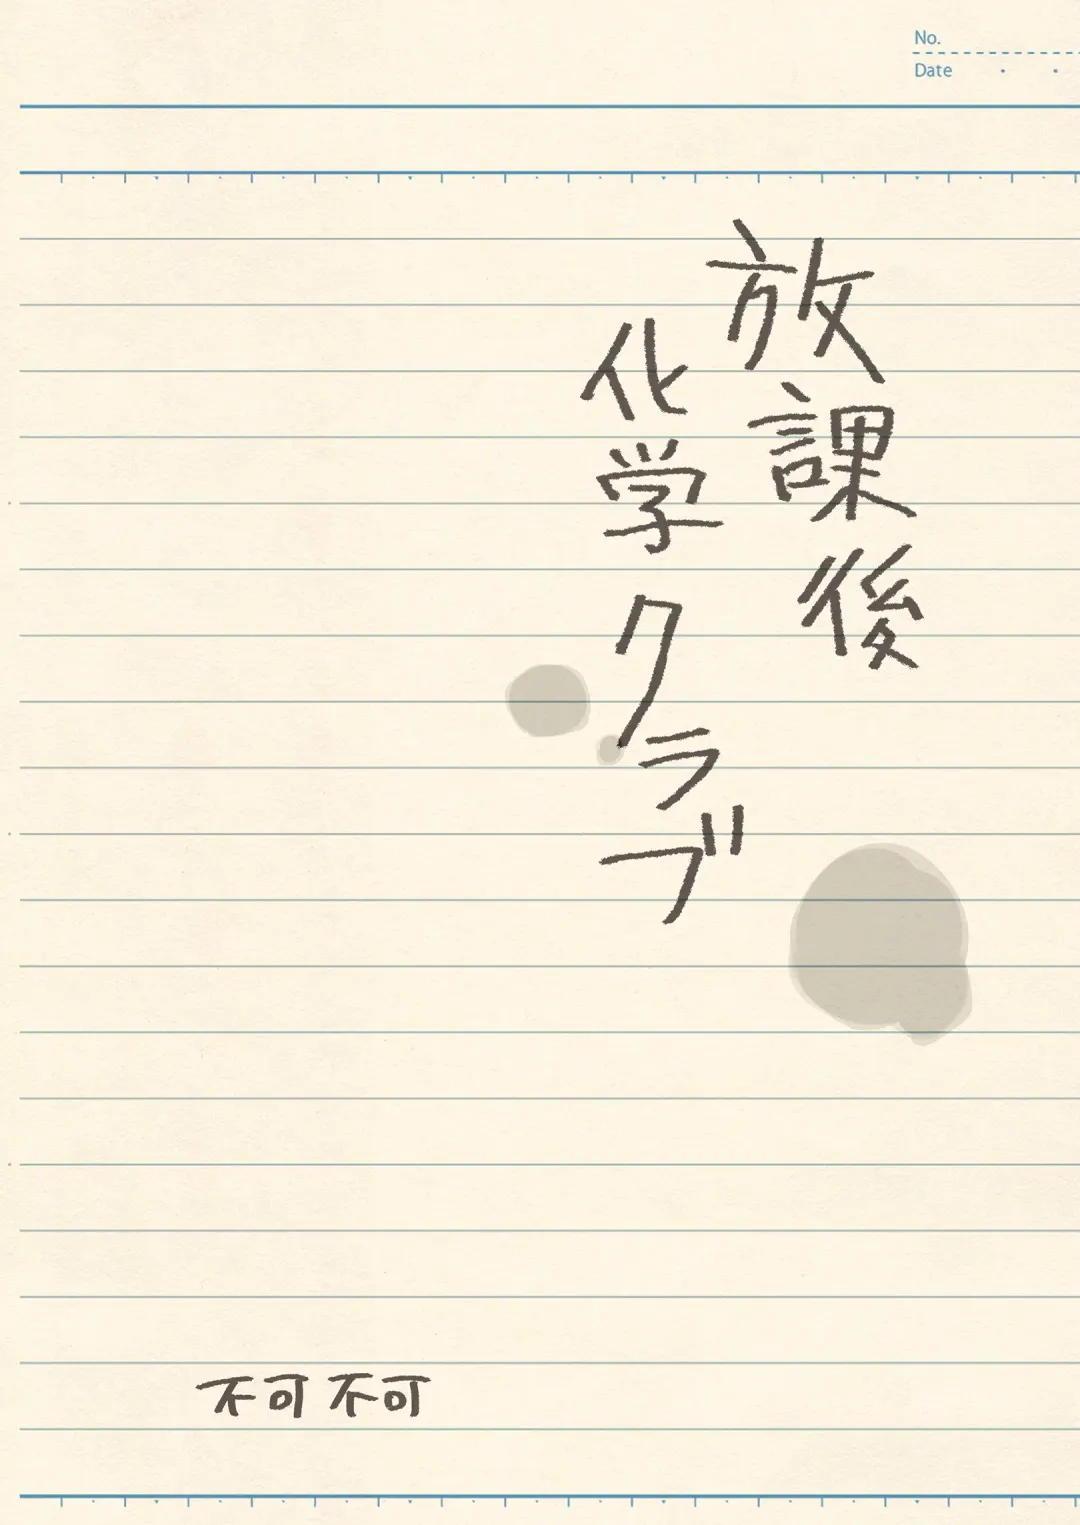 No.
Date
放課後
化学クラブ
不可不可